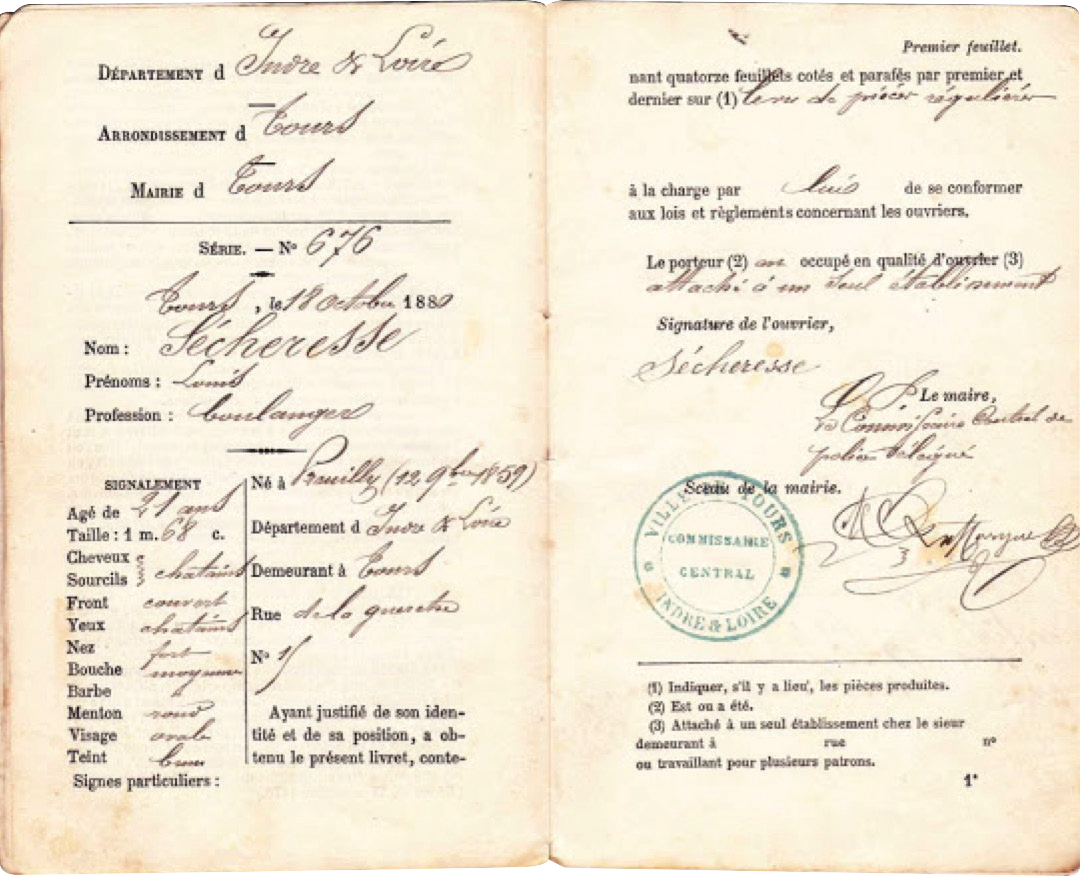 DÉPARTEMENT d Indre & Loire
ARRONDISSEMENT d Tours
MAIRIE d Tours
SÉRIE. — N° 676
Tours, le 18 octobre 1880
Nom : Sécheresse
Prénoms : Louis
Profession : boulanger
SIGNALEMENT
Agé de 21 ans
Taille : 1 m. 68 c.
Cheveux
Sourcils
chatains
Front couvert
Yeux chatains
Nez fort
Bouche moyenne
Barbe
Menton rond
Visage ovale
Teint brun
Signes particuliers :
Né à Preuilly (12 9bre 1859)
Département d Indre & Loire
Demeurant à Tours
Rue de la
N° 15
Ayant justifié de son iden-
tité et de sa position, a ob-
tenu le présent livret, conte-
Premier feuillet.
nant quatorze feuillets cotés et parafés par premier et
dernier sur (1) de pièces régulières
à la charge par lui de se conformer
aux lois et règlements concernant les ouvriers.
Le porteur (2) occupé en qualité d'ouvrier (3)
attaché à un seul établissement
Signature de l'ouvrier,
Sécheresse
Le maire,
Commissaire Central de
police délégué
Sceau de la mairie.
VILLE DE TOURS
COMMISSAIRE
CENTRAL
INDRE & LOIRE
(1) Indiquer, s'il y a lieu, les pièces produites.
(2) Est ou a été.
(3) Attaché à un seul établissement chez le sieur
demeurant à rue n°
ou travaillant pour plusieurs patrons.
1*